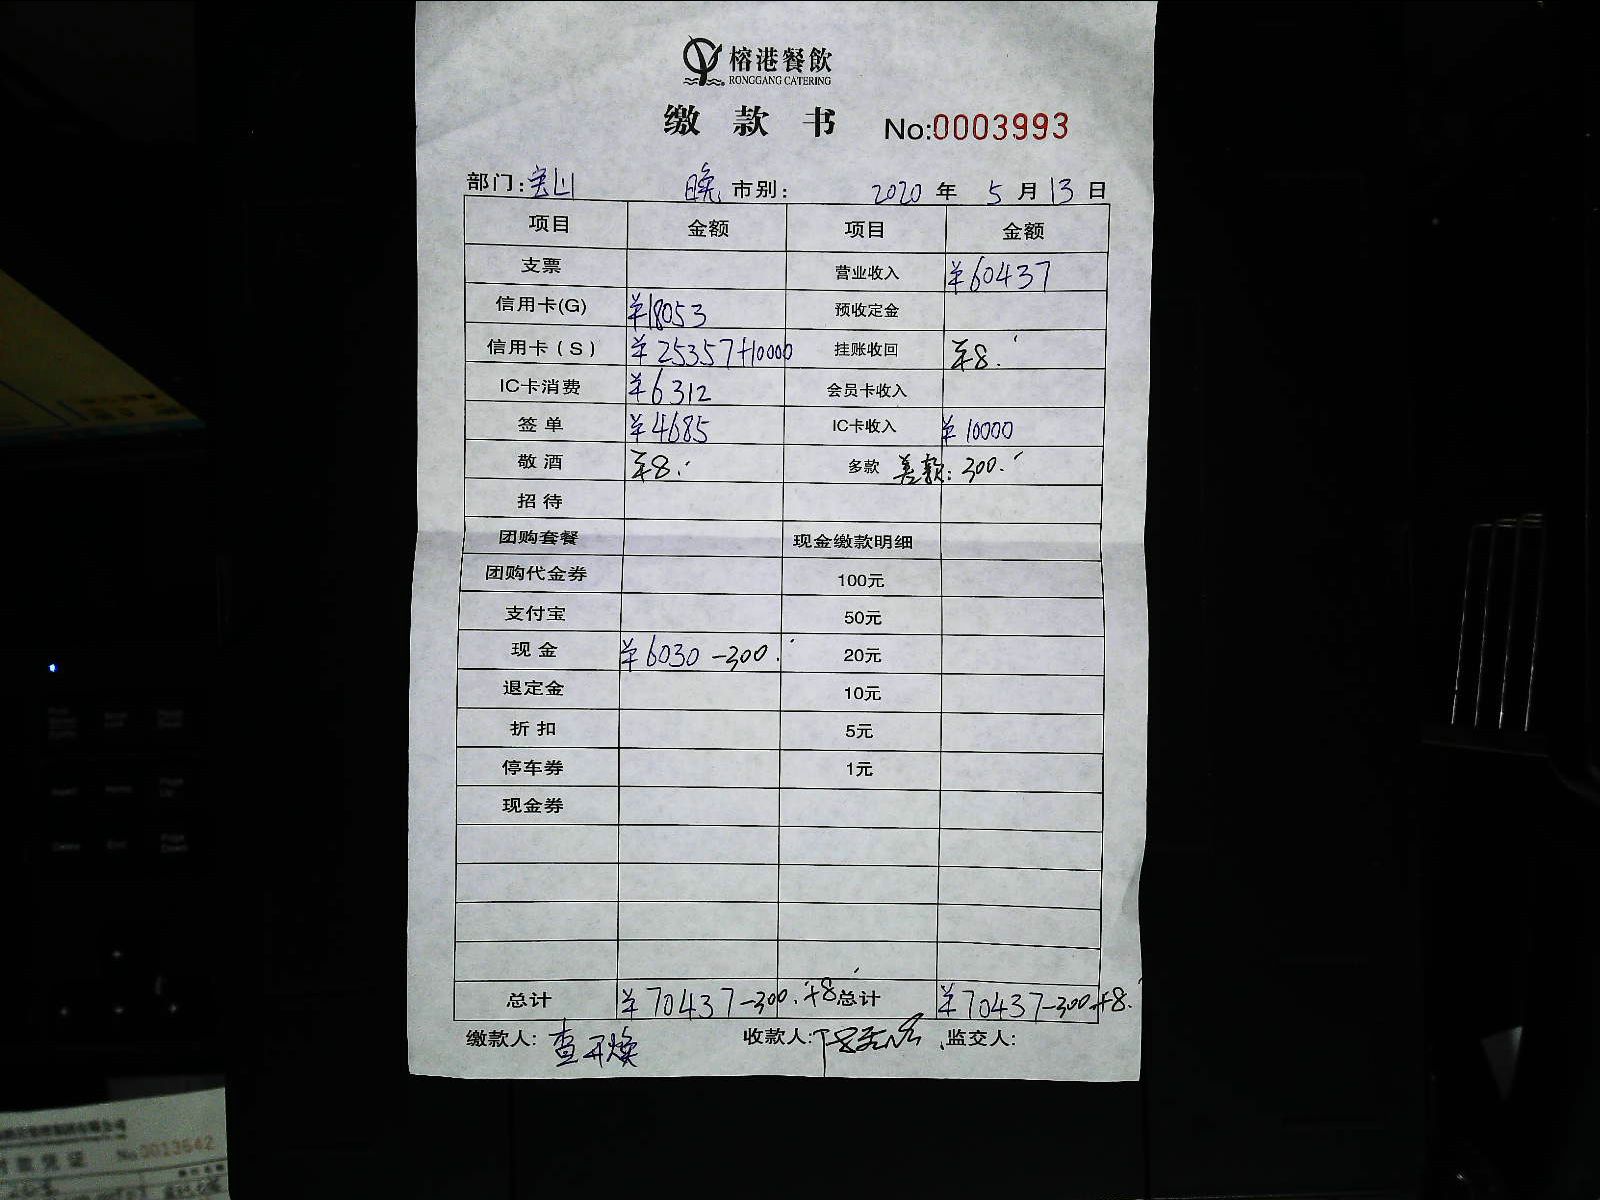 榕港餐飲
RONGGANG CATERING
缴款书 No:0003993
部门:宝山 晚市别: 2020年5月13日
项目 金额 项目 金额
支票 营业收入 ¥60437
信用卡(G) ¥18053 预收定金
信用卡(S) ¥25357+10000 挂账收回 ¥8.
IC卡消费 ¥6312 会员卡收入
签单 ¥4685 IC卡收入 ¥10000
敬酒 ¥8. 多款 差款:300.
招待
团购套餐 现金缴款明细
团购代金券 100元
支付宝 50元
现金 ¥6030-300. 20元
退定金 10元
折扣 5元
停车券 1元
现金券
总计 ¥70437-300.+8 总计 ¥70437-300+8.
缴款人:查开焕 收款人: 监交人:
No 0013642